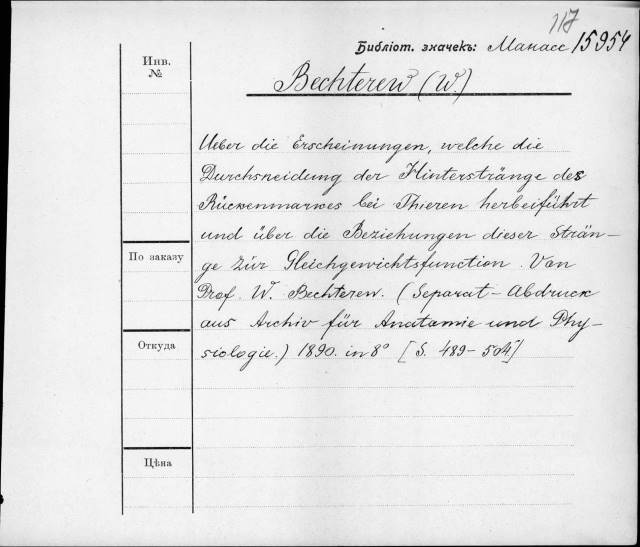 117
Библіот. значекъ: Манасс 15954
Инв. №
Bechterew (W)
Ueber die Erscheinungen, welche die
Durchsneidung der Hinterstränge des
Rückenmarkes bei Thieren herbeiführt
und über die Beziehungen dieser Strän-
По заказу
ge zür Gleichgewichtsfunction. Von
Prof. W. Bechterew. (Separat-Abdruck
aus Archiv für Anatamie und Phy-
Откуда
siologie.) 1890. in 8° [S. 489-504]
Цѣна